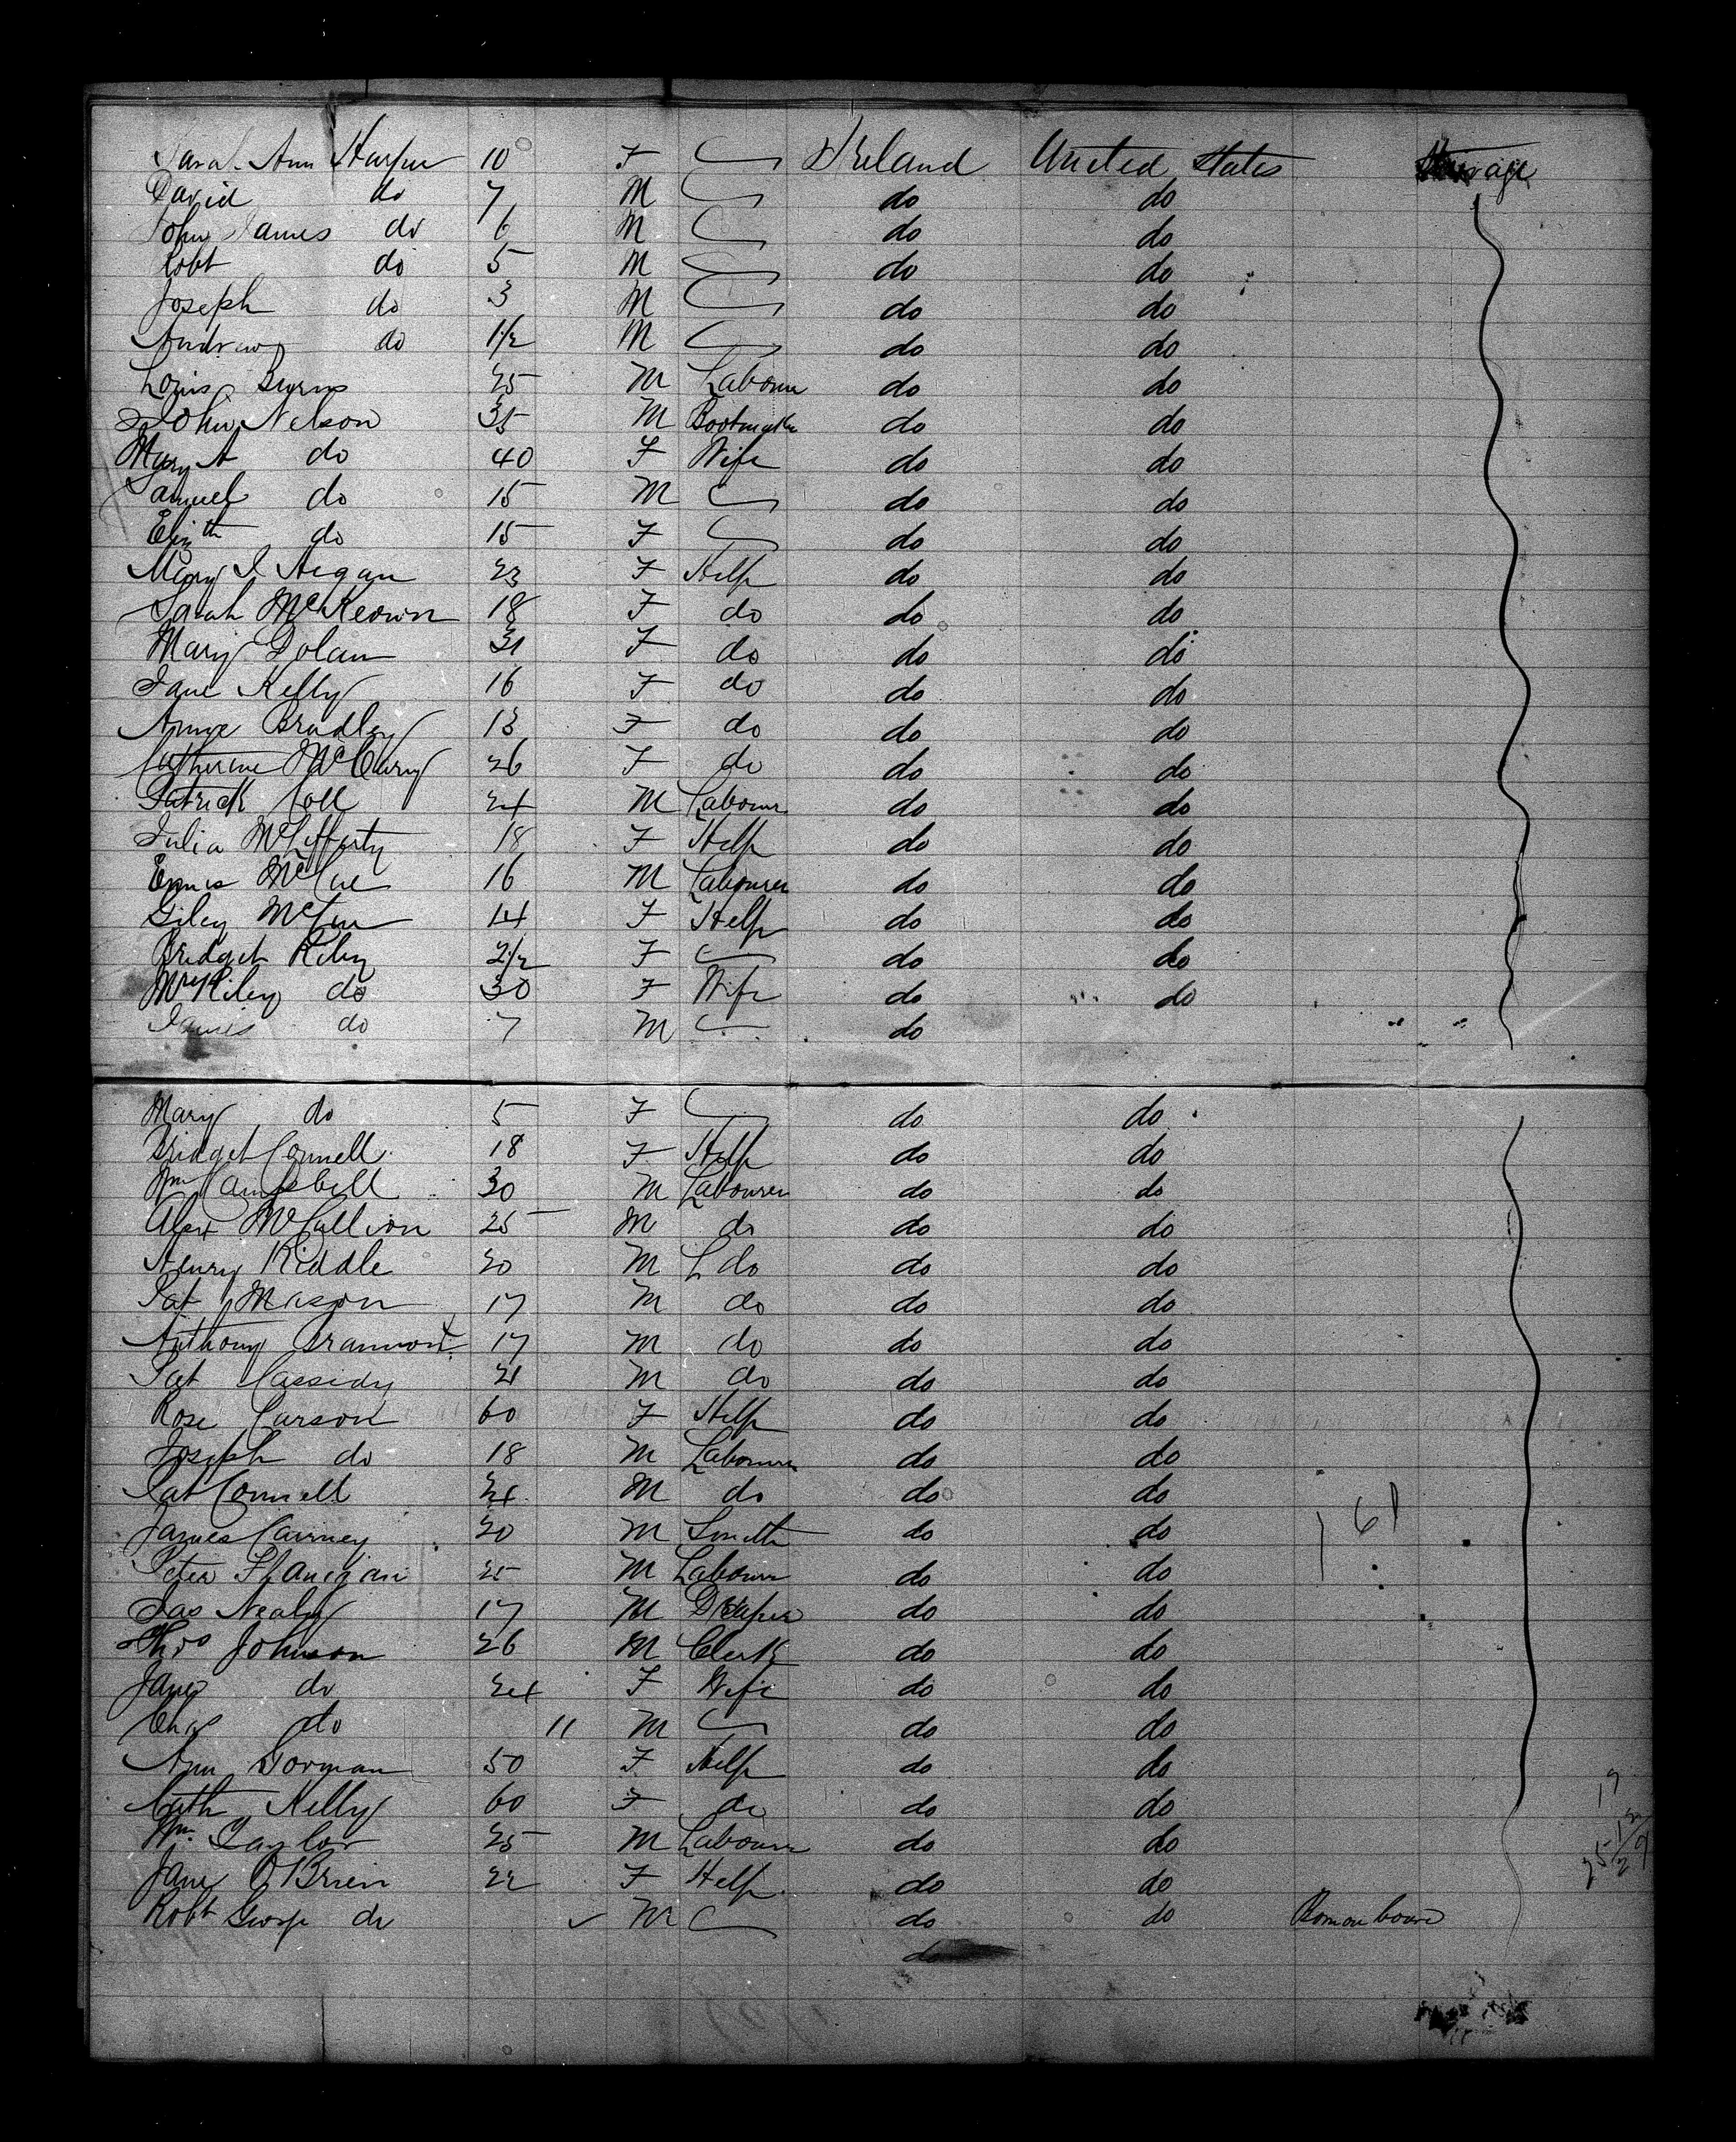 Sarah Ann Harper 10 F Ireland United States Steerage
David do 7 M do do
John James do 6 M do do
Robt do 5 M do do
Joseph do 3 M do do
Andrew do 1½ M do do
Louis Burns 25 M Labourer do do
John Nelson 35 M Bootmaker do do
Mary A do 40 F Wife do do
Samuel do 15 M do do
Elizth do 15 F do do
Mary J Hegan 23 F Help do do
Sarah McKeown 18 F do do do
Mary Dolan 21 F do do do
Jane Kelly 16 F do do do
Annie Bradley 13 F do do do
Catherine McCurry 26 F do do do
Patrick Coll 24 M Labourer do do
Julia McLafferty 18 F Help do do
McCue 16 M Labourer do do
Giley McCue 14 F Help do do
Bridget Riley 2½ F do do
Mrs Riley do 30 F Wife do do
James do 7 M do
Mary do 5 F do do
Bridget Connell 18 F Help do do
Wm Campbell 30 M Labourer do do
Alexr McCallion 25 M do do do
Henry Riddle 20 M L do do do
Pat Mason 17 M do do do
Anthony 17 M do do do
Pat Cassidy 21 M do do do
Rose Carson 60 F Help do do
Joseph do 18 M Labourer do do
Pat Connell 24 M do do do
James Cairney 20 M Smith do do
Peter Flanigan 25 M Labourer do do
Jas Nealy 17 M Draper do do
Thos Johnson 26 M Clerk do do
Jane do 24 F Wife do do
Chas do 11 M do do
Ann Gorman 50 F Help do do
Cath Kelly 60 F do do do
Wm Taylor 25 M Labourer do do
Jane O'Brien 22 F Help do do
Robt George do M do do Born on board
do